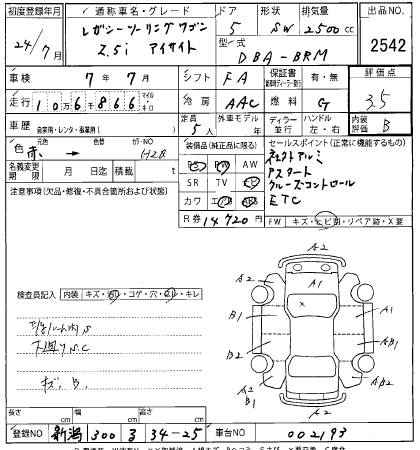 初度登録年月 通称車名・グレード ドア 形状 排気量 出品NO
24/7月 レガシーツーリングワゴン 5 SW 2500cc 2542
2.5i アイサイト 型式 DBA-BRM
車検 7年7月 シフト FA 保証書 有・無 評価点
走行 10万6千866 マイル キロ 冷房 AAC 燃料 G 3.5
車歴 自家用・レンタ・事業用( ) 定員 5人 外車モデル 年 ディーラー 並行 ハンドル 左・右 内装 B
色 元色 赤 色替 カラーNO H2B 装備品(純正品に限る) セールスポイント(正常に機能するもの)
PS PW AW
名義変更期限 月 日 積載 t SR TV ナビ アルミ
注意事項(欠品・修復・不具合箇所および状態) カワ エアB ABS スタート
クルーズコントロール
ETC
R券 14720円 FW キズ・ヒビ割・リペア跡・X要
A2
A2 A1 A2
X
検査員記入 内装 キズ・汚レ・コゲ・穴・スレ・キレ
B1 A1
S
下廻りS.C B2 AB1
キズ、B. A2 B1 AB2
A2
長さ cm 幅 cm 高さ cm
登録NO 新潟 300 ミ 34-25 車台NO 002193